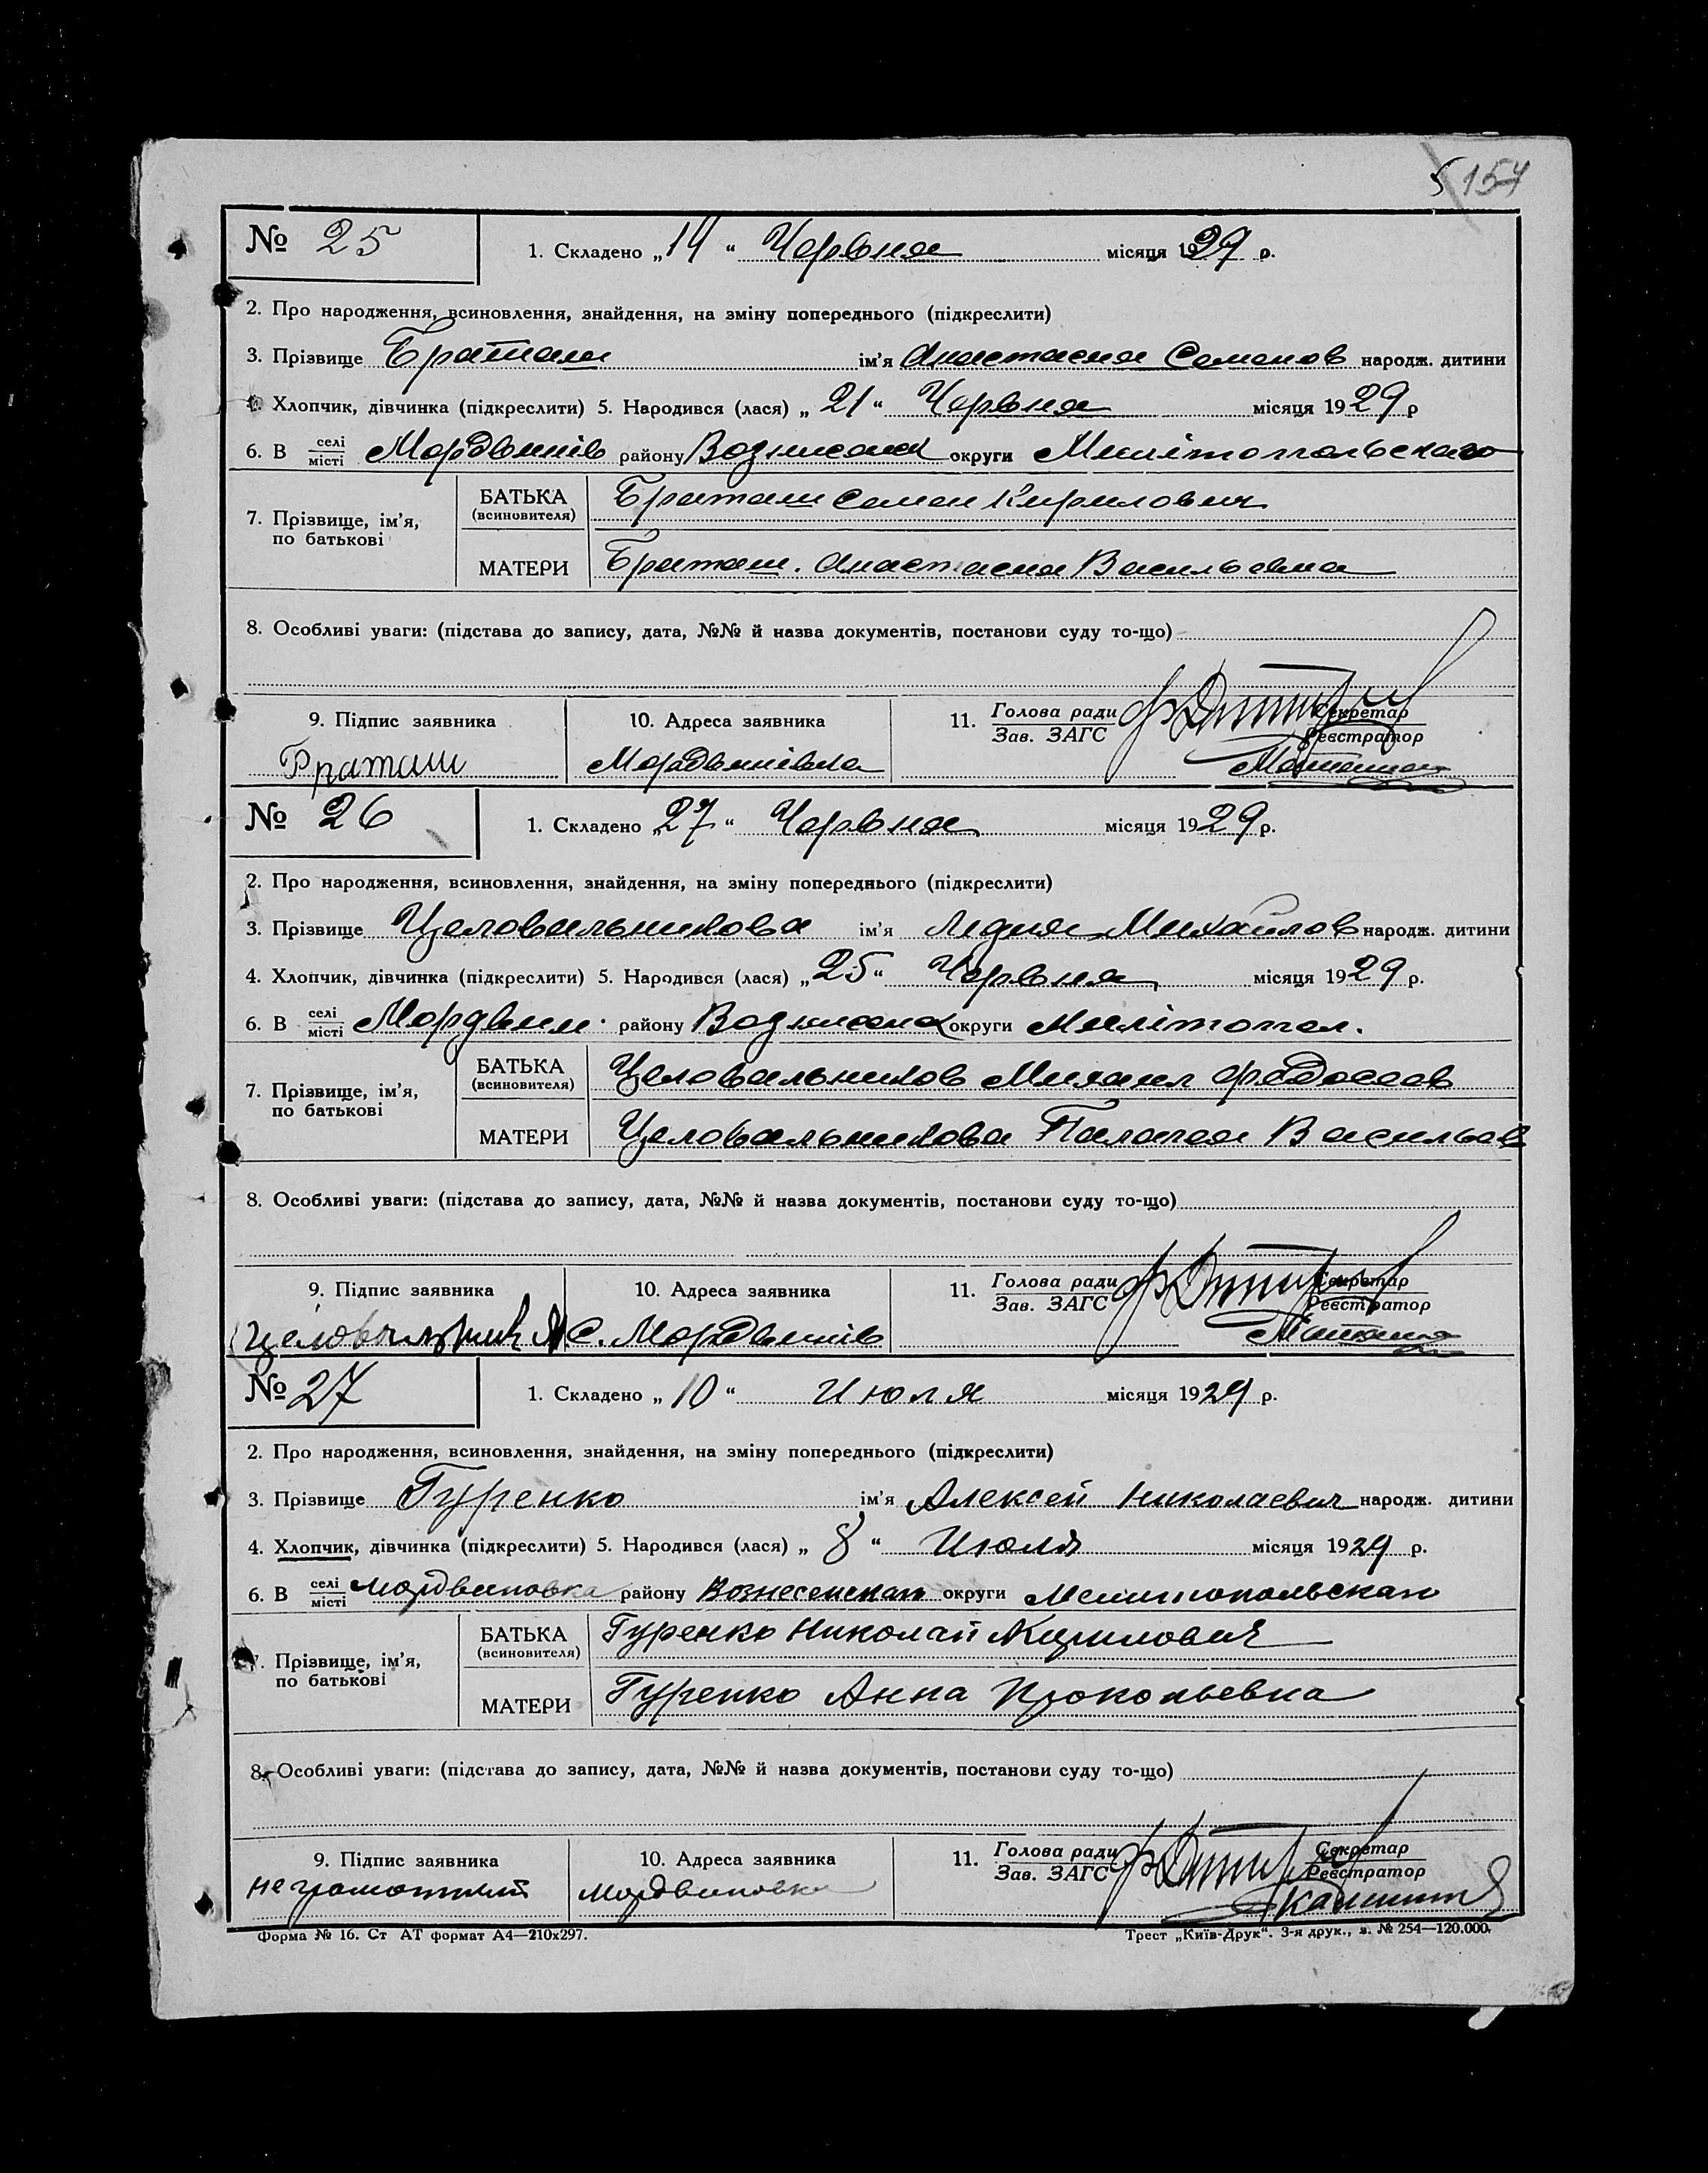 5 154
№ 25 1. Складено „14“ Червня місяця 1929 р.
2. Про народження, всиновлення, знайдення, на зміну попереднього (підкреслити)
3. Прізвище Браташ ім'я Анастасия Семенов народж. дитини
4. Хлопчик, дівчинка (підкреслити) 5. Народився (лася) „21“ Червня місяця 1929 р
6. В селі місті Мордвинів району Вознисенск округи Мелітопольского
7. Прізвище, ім'я, по батькові БАТЬКА (всиновителя) Браташ Семен Кирилович
МАТЕРИ Браташ. Анастасия Васильевна
8. Особливі уваги: (підстава до запису, дата, №№ й назва документів, постанови суду то-що)
9. Підпис заявника 10. Адреса заявника 11. Голова ради Зав. ЗАГС Секретар Реєстратор
Браташ Мордвинівка
№ 26 1. Складено „27“ Червня місяця 1929 р.
2. Про народження, всиновлення, знайдення, на зміну попереднього (підкреслити)
3. Прізвище Целовальникова ім'я Лидия Михайлов народж. дитини
4. Хлопчик, дівчинка (підкреслити) 5. Народився (лася) „25“ Червня місяця 1929 р.
6. В селі місті Мордвин. району округи Мелітопол.
7. Прізвище, ім'я, по батькові БАТЬКА (всиновителя) Целовальников Михаил Федосеев
МАТЕРИ Целовальникова Палагея Васильев
8. Особливі уваги: (підстава до запису, дата, №№ й назва документів, постанови суду то-що)
9. Підпис заявника 10. Адреса заявника 11. Голова ради Зав. ЗАГС Секретар Реєстратор
С. Мордвинів
№ 27 1. Складено „10“ Июля місяця 1929 р.
2. Про народження, всиновлення, знайдення, на зміну попереднього (підкреслити)
3. Прізвище Гуренко ім'я Алексей Николаевич народж. дитини
4. Хлопчик, дівчинка (підкреслити) 5. Народився (лася) „8“ Июля місяця 1929 р.
6. В селі місті Мордвиновка району Вознесенскаго округи Мелитопольскаго
7. Прізвище, ім'я, по батькові БАТЬКА (всиновителя) Гуренко Николай Кирилович
МАТЕРИ Гуренко Анна Прокопьевна
8. Особливі уваги: (підстава до запису, дата, №№ й назва документів, постанови суду то-що)
9. Підпис заявника 10. Адреса заявника 11. Голова ради Зав. ЗАГС Секретар Реєстратор
неграмотный Мордвиновка
Форма № 16. Ст АТ формат А4—210х297. Трест „Київ-Друк“. 3-я друк., з. № 254—120.000.